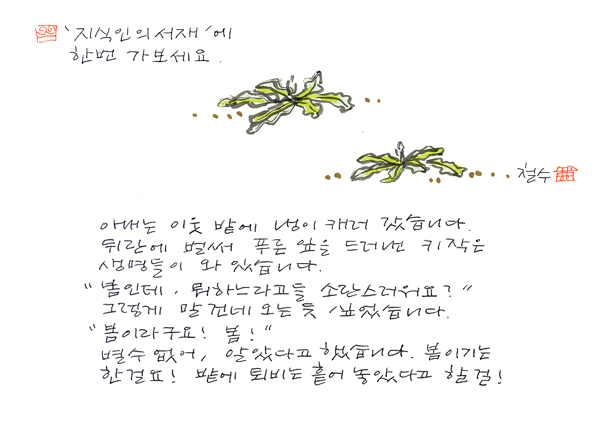 '지식인의 서재'에
한번 가보세요.
철수
아내는 이웃 밭에 냉이 캐러 갔습니다.
뒤란에 벌써 푸른 잎을 드러낸 키작은
생명들이 와 있습니다.
"봄인데, 뭐하느라고들 소란스러워요?"
그렇게 말 건네 오는 듯 싶었습니다.
"봄이라구요! 봄!"
별수 없어, 알았다고 했습니다. 봄이기는
한걸요! 밭에 퇴비는 흩어 놓았다고 할 걸!